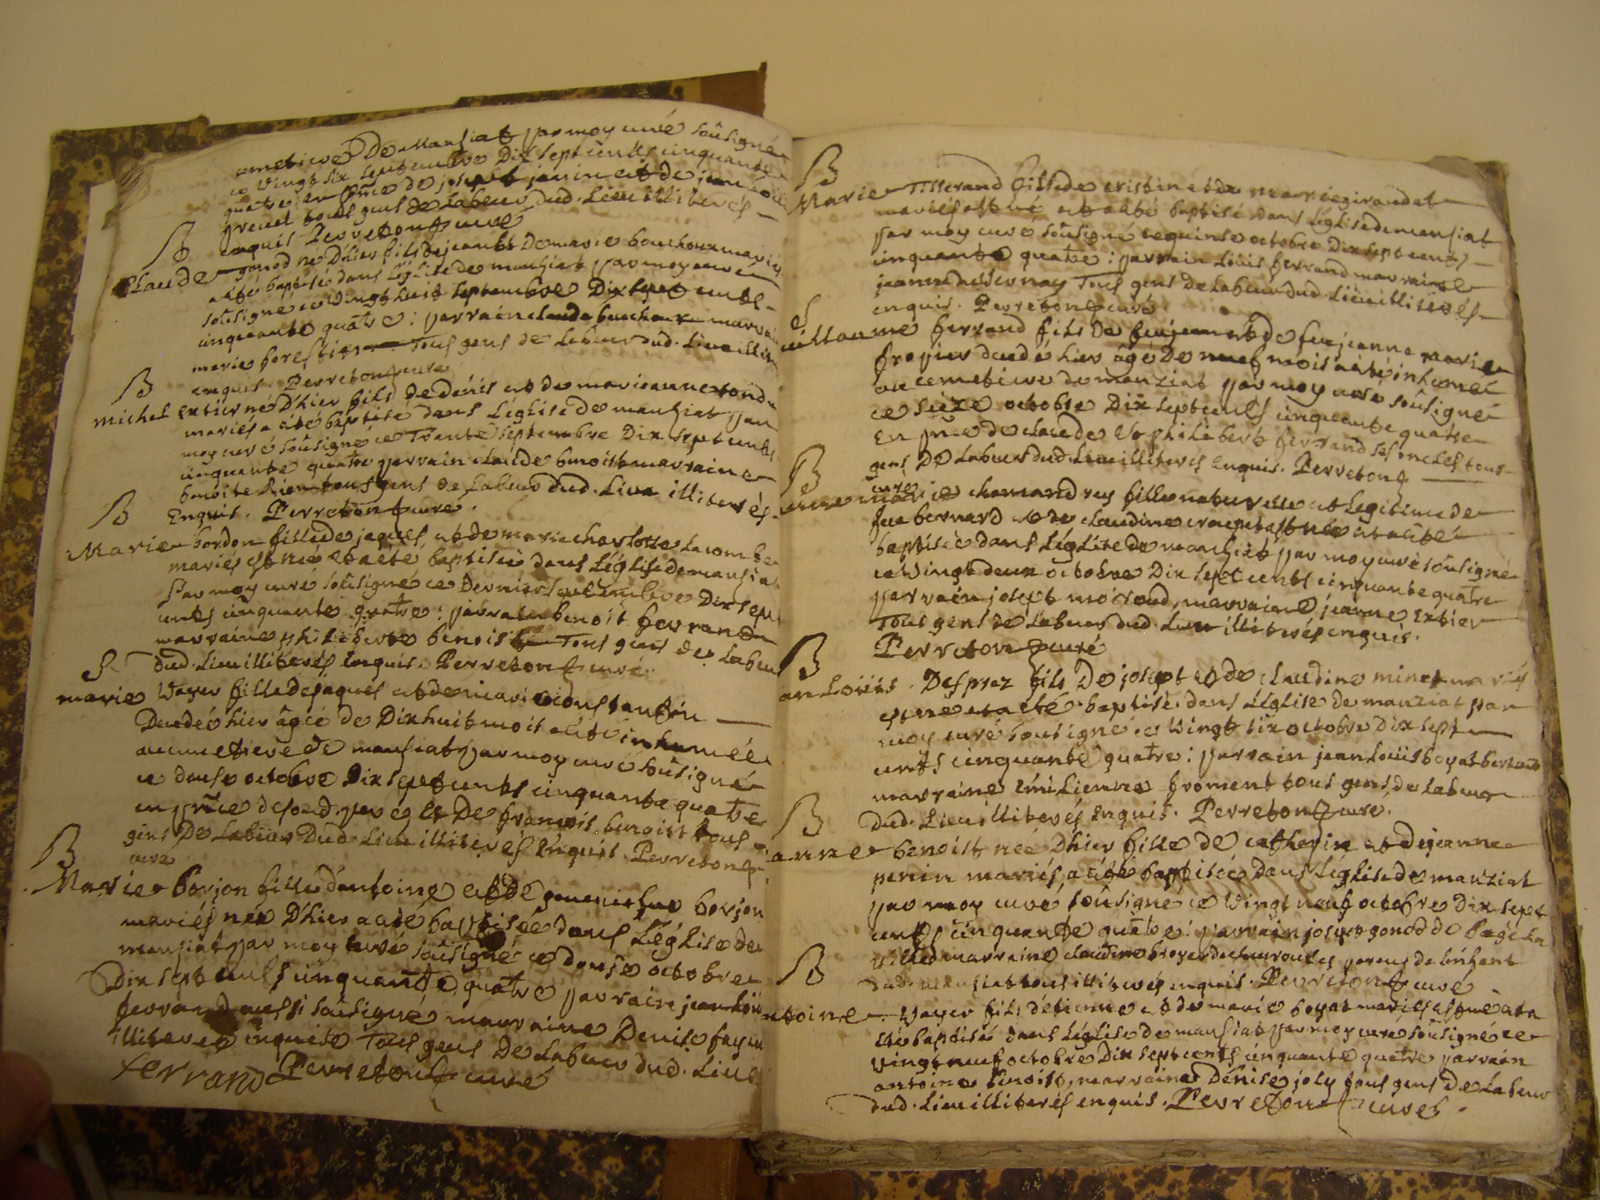 cmetiere De Manziat par moy curé soûsigné
ce vingt six septembre Dix sept cents cinquante
quatre en pñce de josept janin et de jean
tous gens de Labeur dud. Lieu illiterés
enquis Perreton curé
B
Claude gonod né D'hier fils de jean et De marie bouchoux mariés
a été baptisé dans L'église de manziat par moy curé
soûsigné ce vingt huit septembre Dix sept cents
cinquante quatre : parrain claude bouchoux marrai
marie forestier Tous gens de Labeur dud. Lieu illit
enquis. Perreton curé
B
michel Extier né D'hier fils de denis et de marie anne
mariés a été baptisé dans L'église de manziat par
moy curé soûsigné ce Trente septembre Dix sept cents
cinquante quatre parrain claude benoist marraine
benoite tous gens de Labeur dud. Lieu illiterés
Enquis. Perreton curé.
B
Marie bordon fille de jaques et de marie charlotte Lacombe
mariés est née et a été baptisée dans L'église de manziat
Par moy curé soûsigné ce Dernier septembre Dix sept
cents cinquante quatre : parrain benoit ferrand
marraine philiberte benoist Tous gens de Labeur
dud. Lieu illiterés Enquis. Perreton curé.
S
marie Vayer fille de jaques et de marie constantin
Decedée hier âgée de Dixhuit mois a été inhumée
au cimetiere de manziat par moy curé soûsigné
ce douse octobre Dix sept cents cinquante quatre
en pñce de et De françois benoist tous
gens De Labeur Dud. Lieu illiterés Enquis. Perreton
curé
B
Marie borjon fille d'antoine et de borjon
mariés née D'hier a été baptisée dans L'église de
manziat par moy curé soûsigné ce douse octobre
Dix sept cents cinquante quatre parrain jean
ferrand aussi soûsigné marraine Denise
illiterée enquise Tous gens De Labeur dud. Lieu
ferrand Perreton curé
B
Marie Tisserand fille de et de marie giraudet
mariés est née et a été baptisée dans L'église de manziat
par moy curé soûsigné ce quinse octobre Dix sept cents
cinquante quatre : parrain Louis ferrand marraine
jeanne Tous gens de Labeur dud. Lieu illiterés
enquis. Perreton curé
S
guillaume ferrand fils de feu jean et de feue jeanne marie
frapier decedé hier âgé De neuf mois a été inhumé
au cemetiere de manziat par moy curé soûsigné
ce seize octobre Dix sept cents cinquante quatre
En pñce de claude et philibert ferrand ses oncles tous
gens De Labeur dud. Lieu illiterés enquis. Perreton
curé
B
anne marie chamand fille naturelle et Legitime de
feu bernard et de claudine est née et a été
baptisée dans L'église de manziat par moy curé soûsigné
ce vingt deux octobre Dix sept cents cinquante quatre
parrain josept moiroud, marraine jeanne Extier
Tous gens de Labeur dud. Lieu illiterés enquis.
Perreton curé
B
jean Loüis. Desprez fils De josept et de claudine minet mariés
est né et a été baptisé dans L'église de manziat par
moy curé soûsigné ce vingt six octobre Dix sept
cents cinquante quatre : parrain jean Louis boyat
marraine Emilienne froment tous gens de Labeur
Dud. Lieu illiterés Enquis. Perreton curé.
B
anne benoist née D'hier fille de catherin et de jeanne
perin mariés a été baptisée dans L'église de manziat
par moy curé soûsigné ce vingt neuf octobre Dix sept
cents cinquante quatre : parrain josept gonod de bagé La
ville marraine claudine broyer
dud. manziat tous illiterés enquis. Perreton curé
B
antoine Vayer fils d'étienne et de marie boyat mariés est né et a
été baptisé dans L'église de manziat par moy curé soûsigné ce
vingt neuf octobre Dix sept cents cinquante quatre parrain
antoine benoist, marraine Dénise joly tous gens de Labeur
dud. Lieu illiterés enquis. Perreton curé